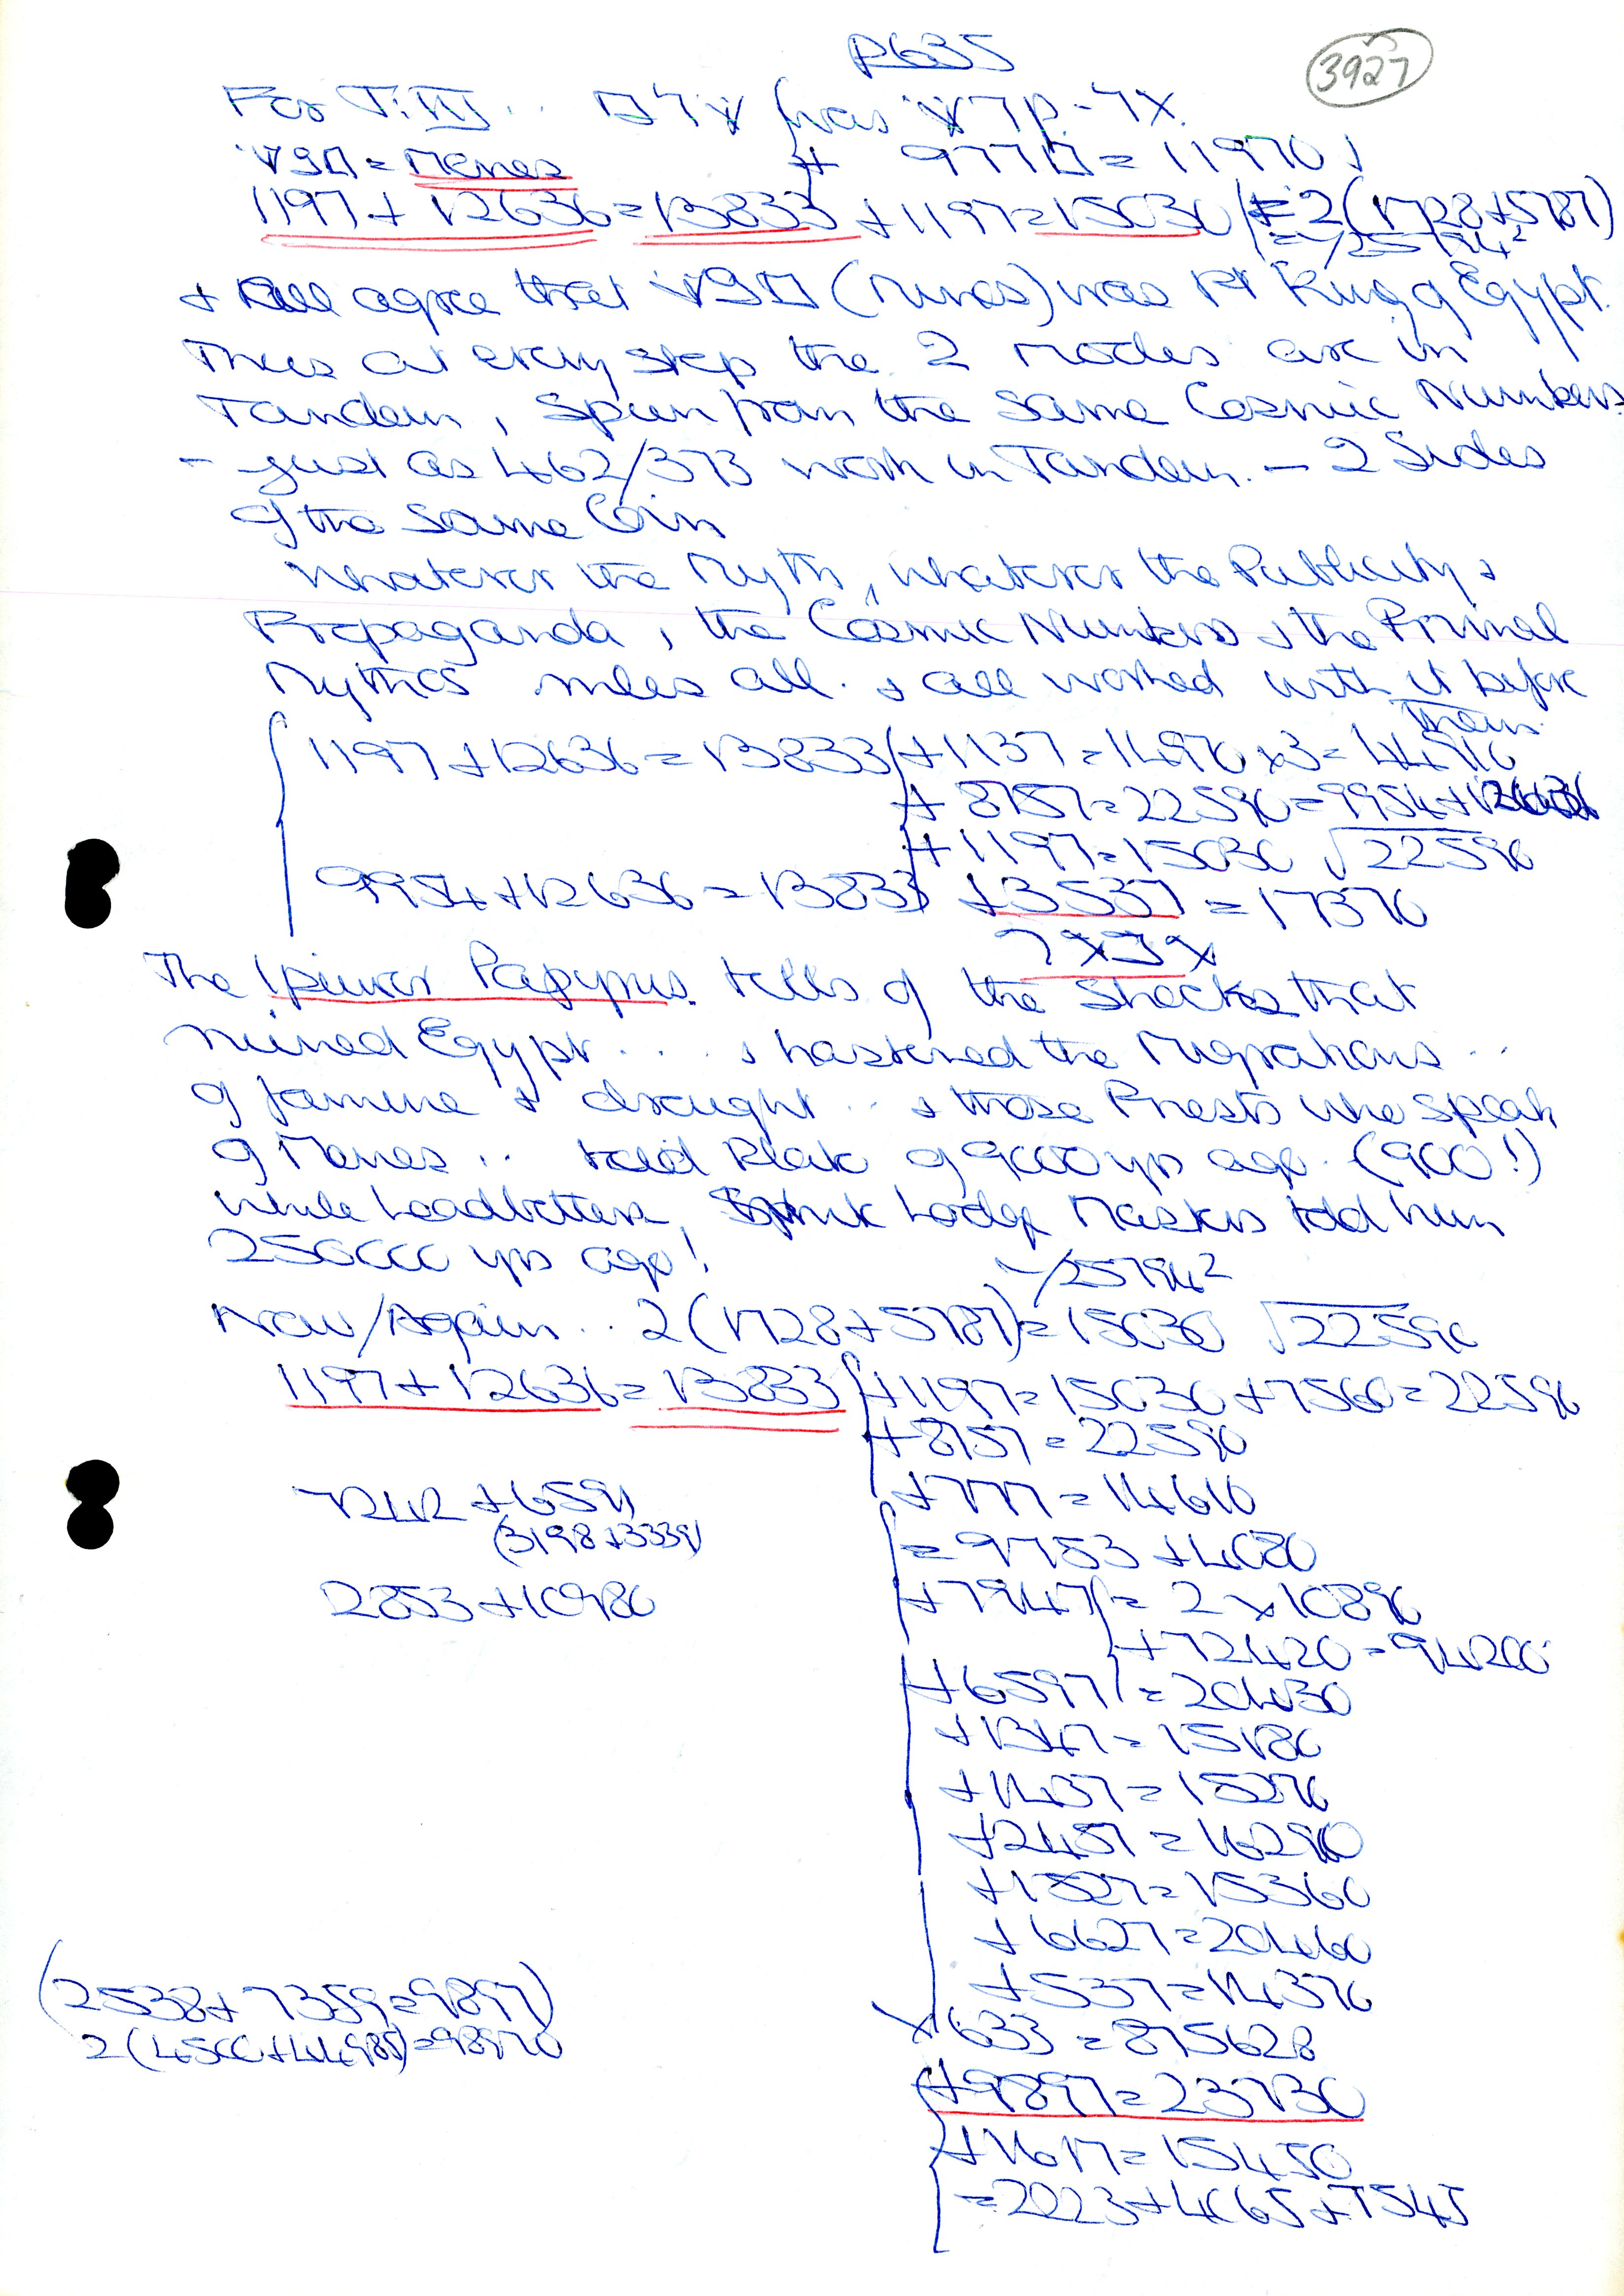 P635
3927
For T.III ..
= Menes
+ 9770 = 11970
1197 + 12636 = 13833 + 1197 = 15030 (= 2(1728 + 5787)
= √25794²
+ all agree that (Menes) was 1st King of Egypt.
Thus at every step the 2 modes are in
Tandem, spun from the same Cosmic Numbers
- just as 462/373 work in Tandem. – 2 Sides
of the same Coin
Whatever the Myth, whatever the Publicity &
Propaganda, the Cosmic Numbers & the Primal
Mythos rules all. & all worked with it before
them.
1197 + 12636 = 13833 + 1137 = 14970 x 3 = 44910
+ 8757 = 22590 = 9954 + 12636
+ 1197 = 15030 √22590
9954 + 12636 = 13833 + 3537 = 17370
The Ipuwer Papyrus tells of the shocks that
ruined Egypt ... & hastened the Migrations ..
of famine & drought .. & those Priests who speak
of Menes .. told Plato of 9000 yrs ago. (900!)
while Leadbetters, Lodge Masters told him
250000 yrs ago!
√25794²
Now/Again .. 2(1728 + 5787) = 15030 √22590
1197 + 12636 = 13833 + 1197 = 15030 + 7560 = 22590
+ 8757 = 22590
+ 777 = 14610
7242 + 6591
(3198 + 3339)
= 9753 + 4080
2853 + 10980
+ 7947 = 2 x 10890
+ 72420 = 94200
+ 6597 = 20430
+ 1347 = 15180
+ 1437 = 15270
+ 2457 = 16290
+ 1527 = 15360
+ 6627 = 20460
+ 537 = 14370
(2538 + 7359 = 9897)
x 633 = 875628
2(4500 + 44985) = 98970
+ 9897 = 23730
+ 1617 = 15450
= 2023 + 4065 + 7545